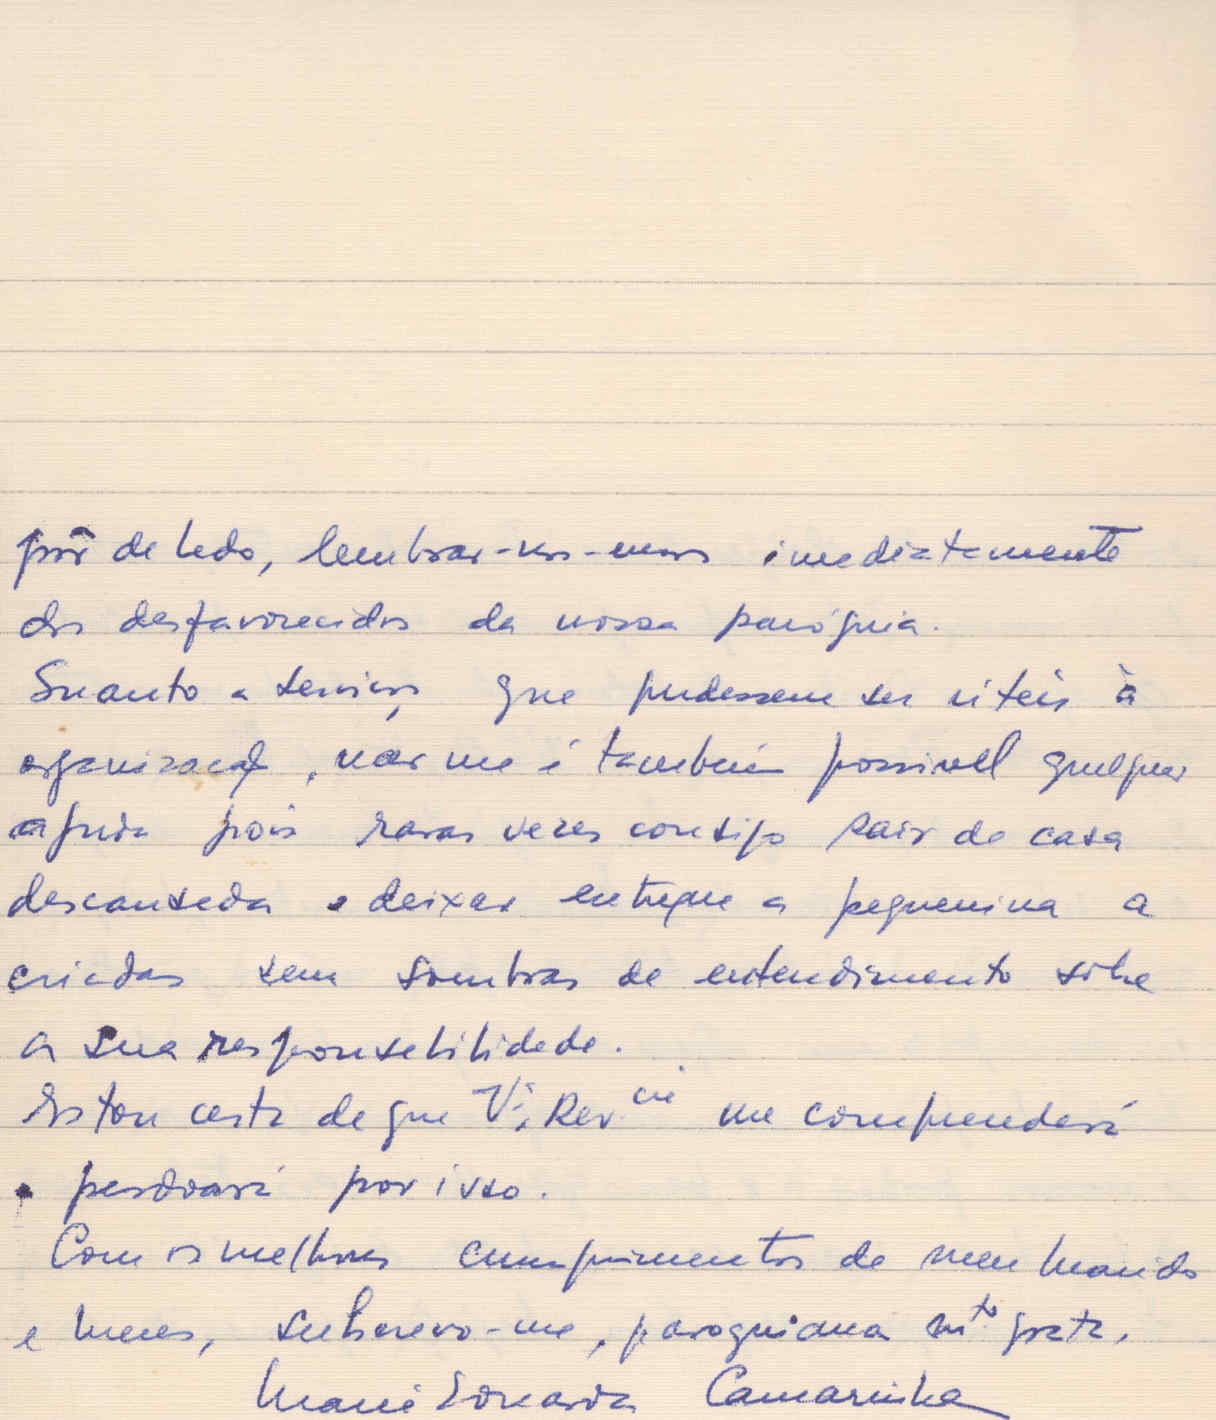 pôr de lado, lembrar-nos-emos imediatamente
dos desfavorecidos da nossa paróquia.
Quanto a serviços que pudessem ser uteis à
organização, não me é também possivel qualquer
ajuda pois raras vezes consigo sair de casa
descansada e deixar entregue a pequenina a
criadas sem sombras de entendimento sôbre
a sua responsabilidade.
Estou certa de que V. Rev.cia me compreenderá
e perdoará por isso.
Com os melhores cumprimentos de meu marido
e meus, subscrevo-me, paroquiana mto grata,
Maria Eduarda Camarinha